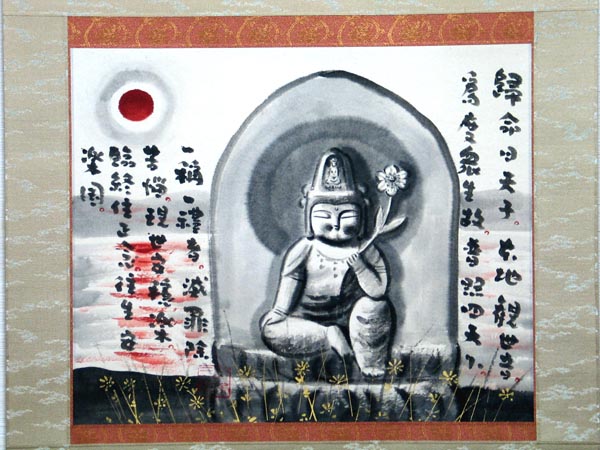 歸命日天子。本地觀世音。
爲度衆生故。普照四天下。
一稱一禮者。滅罪除
苦惱。現世安穩樂
臨終住正念往生安
楽国。